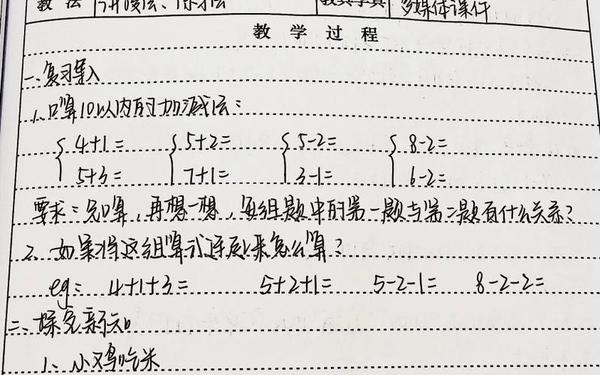 教 法 讲授法、练习法 教具学具 多媒体课件
教 学 过 程
一、复习导入
1、口算10以内的加减法：
4+1= 5+2= 5-2= 8-2=
5+3= 7+1= 3-1= 6-2=
要求：先口算，再想一想，每组题中的第一题与第二题有什么关系？
2、如果将这组算式连起来怎么算？
eg： 4+1+3= 5+2+1= 5-2-1= 8-2-2=
二、探究新知
1、小鸡吃米